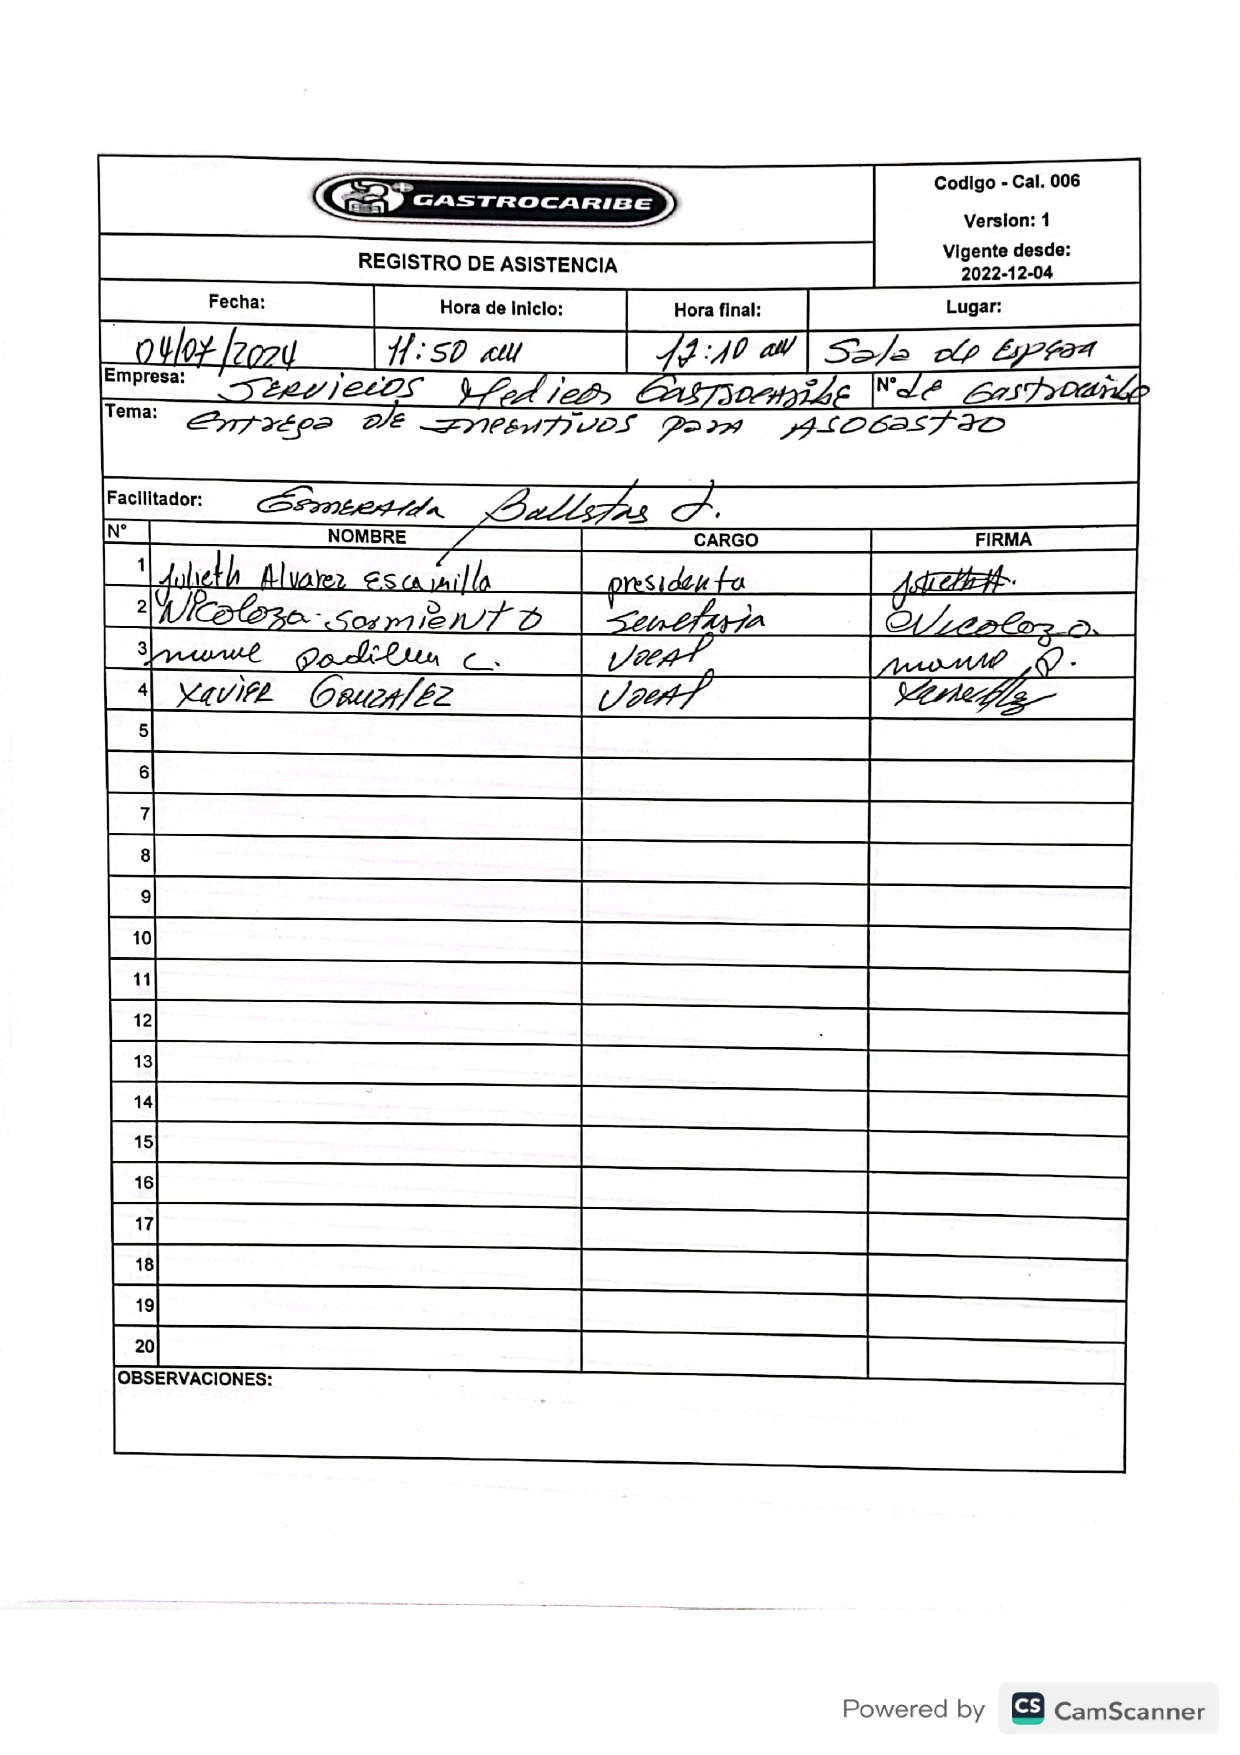 GASTROCARIBE
Codigo - Cal. 006
Version: 1
Vigente desde:
2022-12-04
REGISTRO DE ASISTENCIA
Fecha: Hora de inicio: Hora final: Lugar:
04/07/2024 11:50 am 12:10 am Sala de Espera
Empresa: Servicios Medicos Gastrocaribe N° de Gastrocaribe
Tema: Entrega de Incentivos para ASOGastro
Facilitador: Esmeralda Ballestas J.
N° NOMBRE CARGO FIRMA
1 Julieth Alvarez Escamilla presidenta Julieth A.
2 Nicolaza Sarmiento Secretaria Nicolaza.
3 Padilla C. Vocal P.
4 Xavier Gonzalez Vocal
5
6
7
8
9
10
11
12
13
14
15
16
17
18
19
20
OBSERVACIONES:
Powered by CS CamScanner